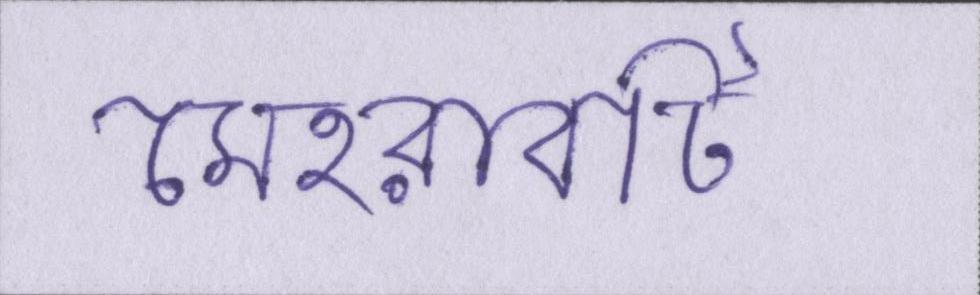 মেহরাবটি